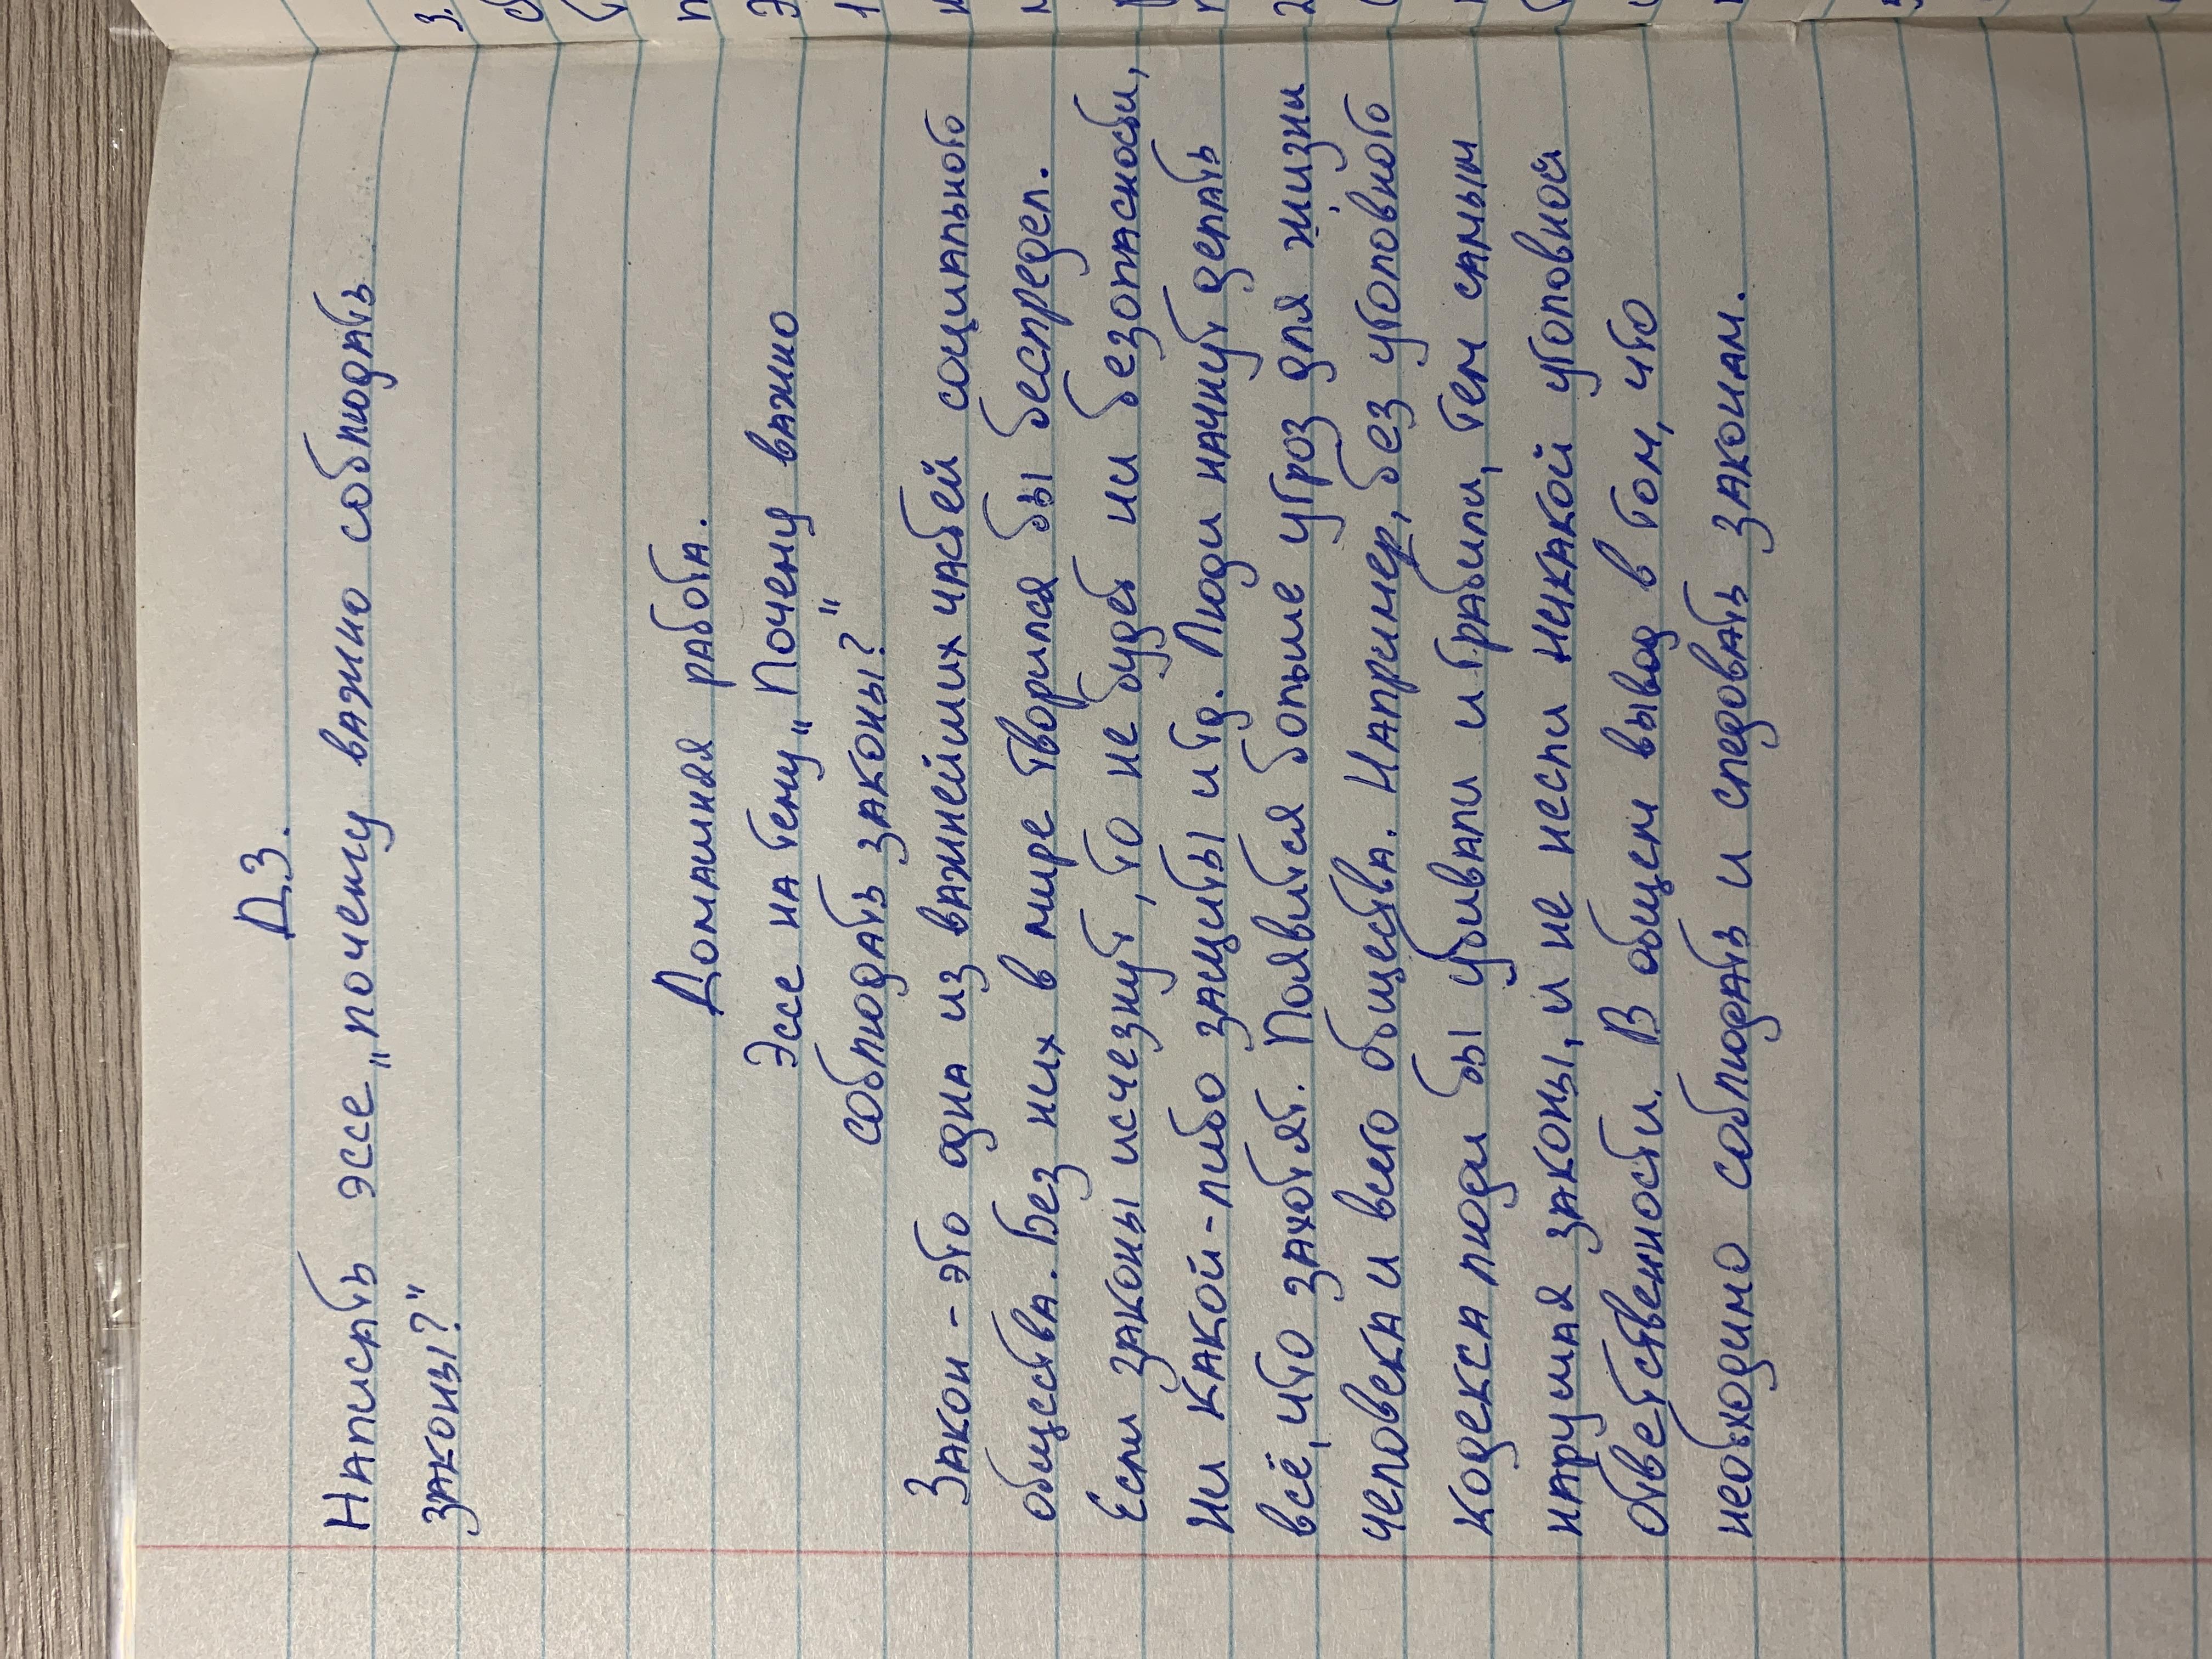 Д.З.
Написать эссе „почему важно соблюдать
законы?"
Домашняя работа.
Эссе на тему „Почему важно
соблюдать законы?"
Закон - это одна из важнейших частей социального
общества. Без них в мире творился бы беспредел.
Если законы исчезнут, то не будет ни безопасности,
ни какой-либо защиты и тд. Люди начнут делать
всё, что захотят. Появится больше угроз для жизни
человека и всего общества. Например, без уголовного
кодекса люди бы убивали и грабили, тем самым
нарушая законы, и не несли никакой уголовной
ответственности. В общем вывод в том, что
необходимо соблюдать и следовать законам.